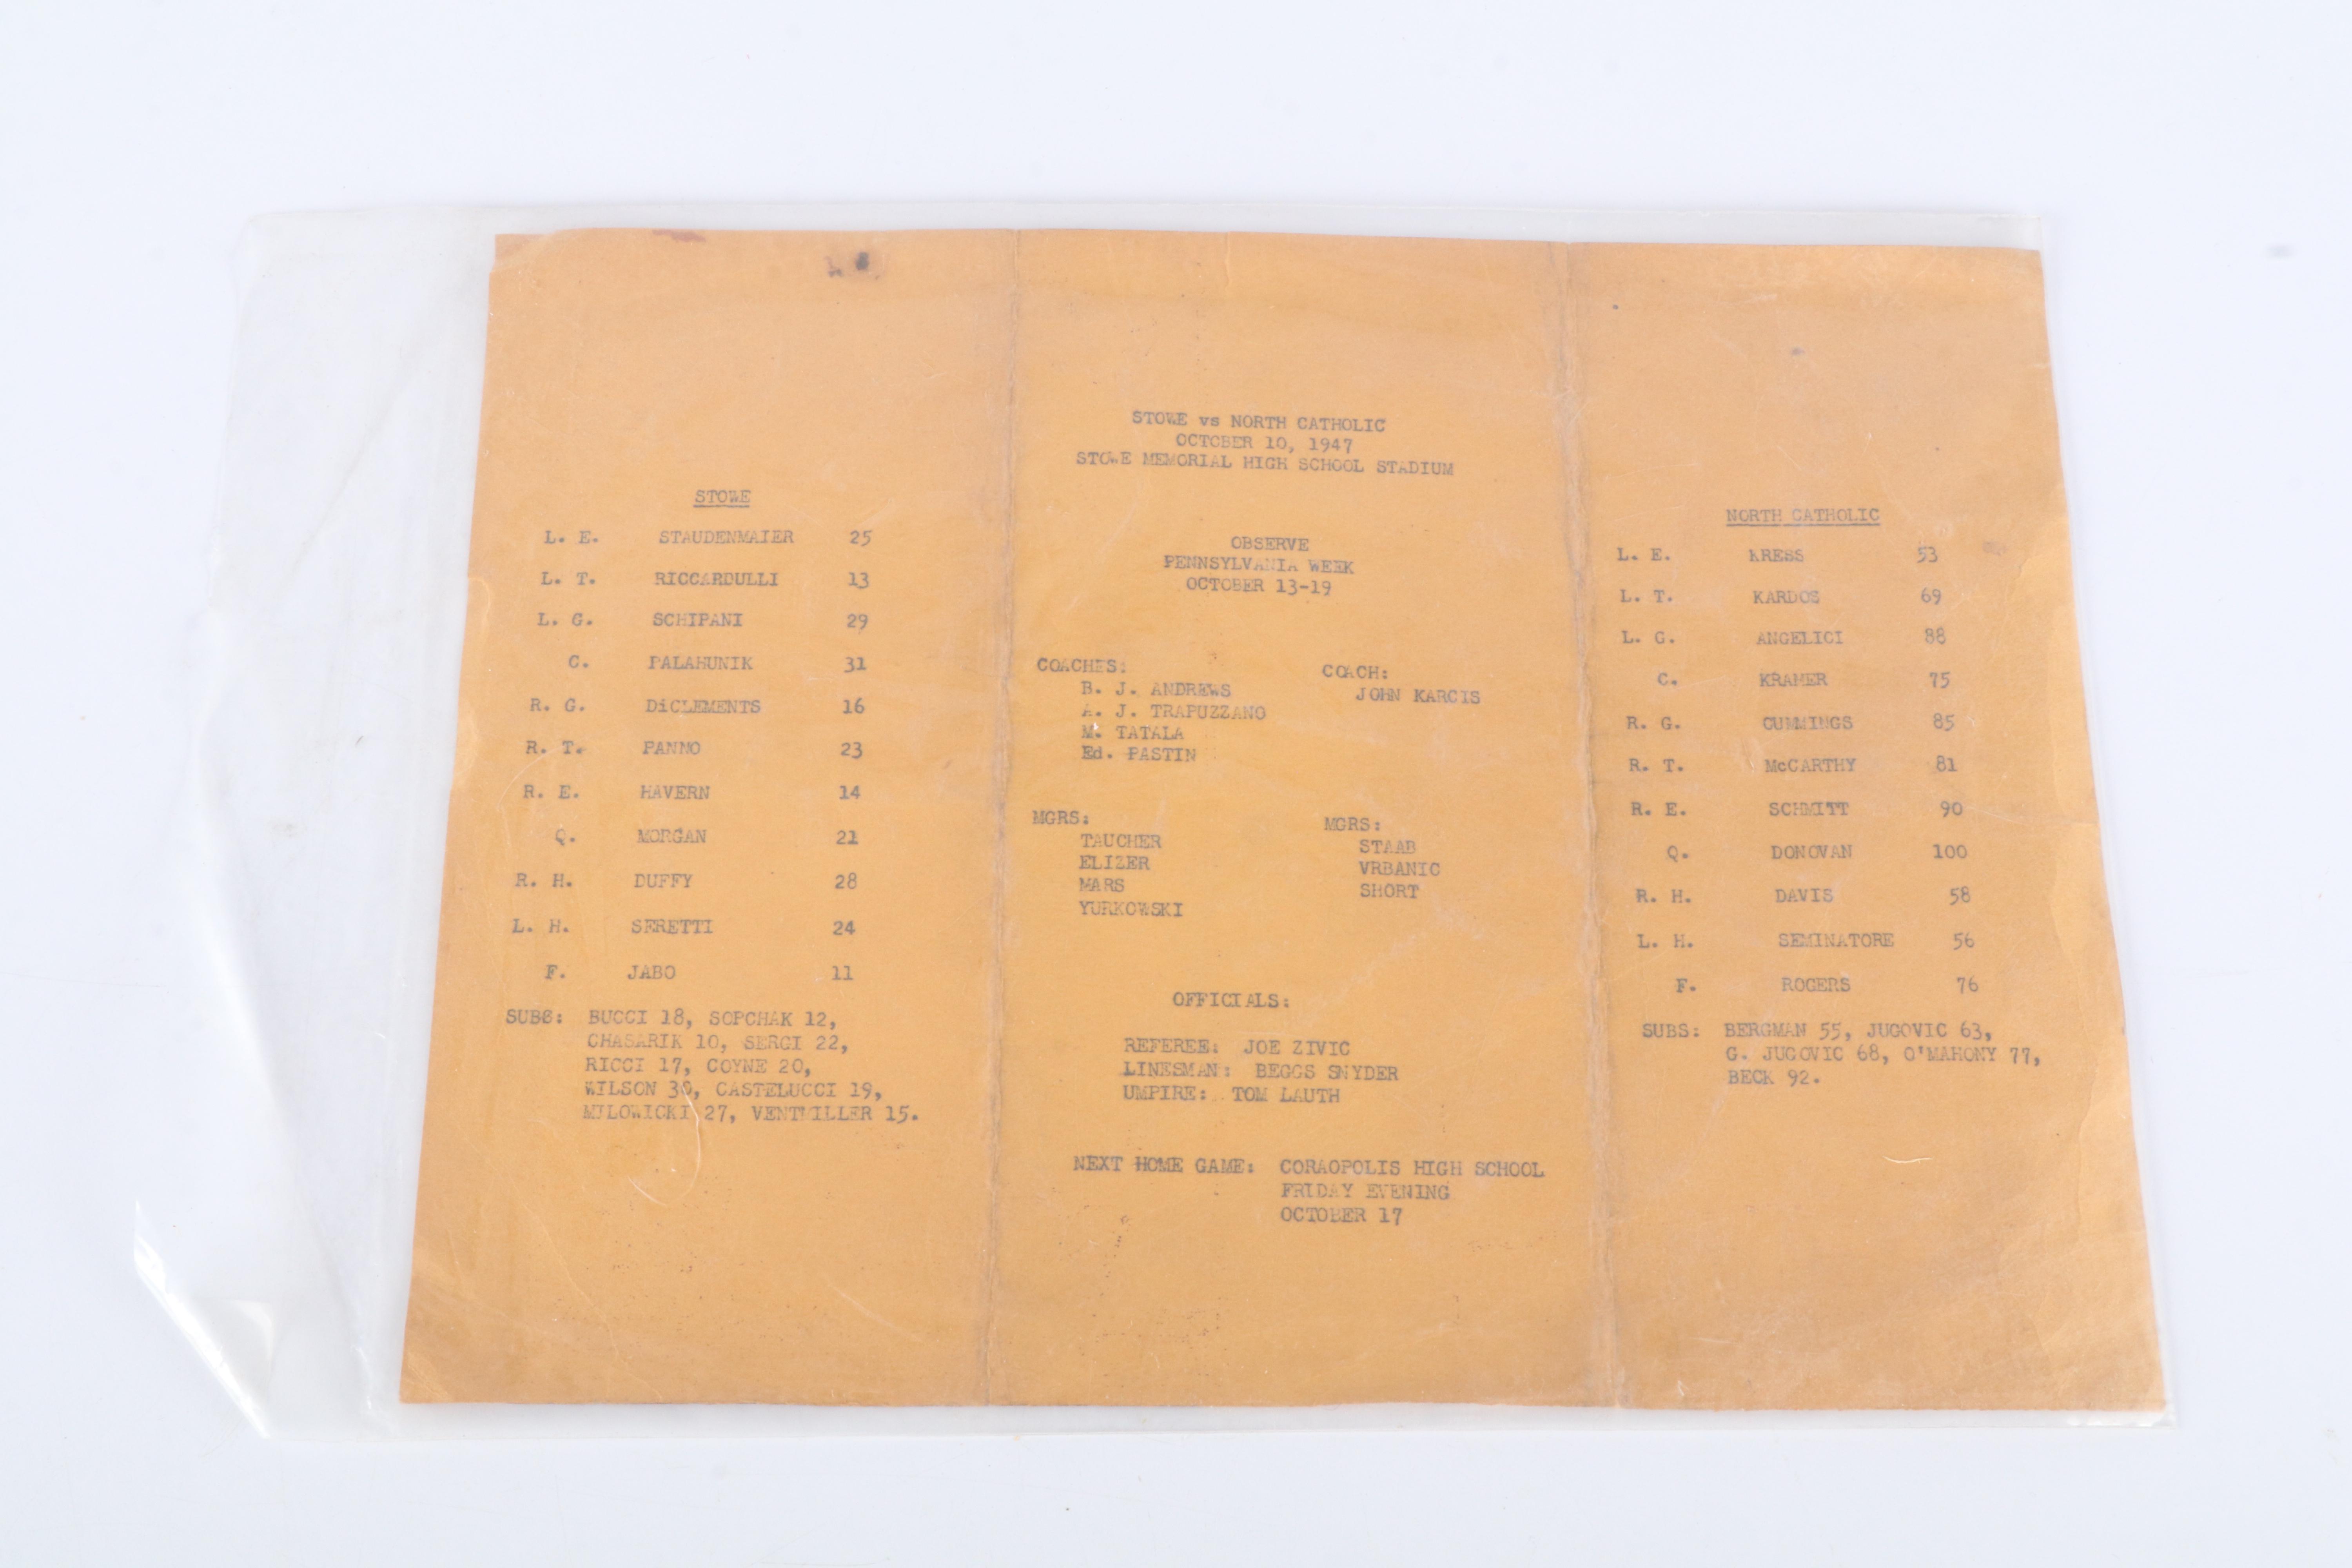 STOWE
L. E. STAUDENMAIER 25
L. T. RICCARDULLI 13
L. G. SCHIPANI 29
C. PALAHUNIK 31
R. G. DiCLEMENTS 16
R. T. PANNO 23
R. E. HAVERN 14
Q. MORGAN 21
R. H. DUFFY 28
L. H. SERETTI 24
F. JABO 11
SUBS: BUCCI 18, SOPCHAK 12,
CHASARIK 10, SERGI 22,
RICCI 17, COYNE 20,
WILSON 30, CASTELUCCI 19,
MILOWICKI 27, 15.
STOWE vs NORTH CATHOLIC
OCTOBER 10, 1947
STOWE MEMORIAL HIGH SCHOOL STADIUM
OBSERVE
PENNSYLVANIA WEEK
OCTOBER 13-19
COACHES:
B. J. ANDREWS
A. J. TRAPUZZANO
M. TATALA
Ed. PASTIN
COACH:
JOHN KARCIS
MGRS:
TAUCHER
ELIZER
MARS
YURKOWSKI
MGRS:
STAAB
VRBANIC
SHORT
OFFICIALS:
REFEREE: JOE ZIVIC
LINESMAN: BEGGS SNYDER
UMPIRE: TOM LAUTH
NEXT HOME GAME: CORAOPOLIS HIGH SCHOOL
FRIDAY EVENING
OCTOBER 17
NORTH CATHOLIC
L. E. KRESS 53
L. T. KARDOS 69
L. G. ANGELICI 88
C. KRAMER 75
R. G. CUMMINGS 85
R. T. McCARTHY 81
R. E. SCHMITT 90
Q. DONOVAN 100
R. H. DAVIS 58
L. H. SEMINATORE 56
F. ROGERS 76
SUBS: BERGMAN 55, JUGOVIC 63,
G. JUGOVIC 68, O'MAHONY 77,
BECK 92.